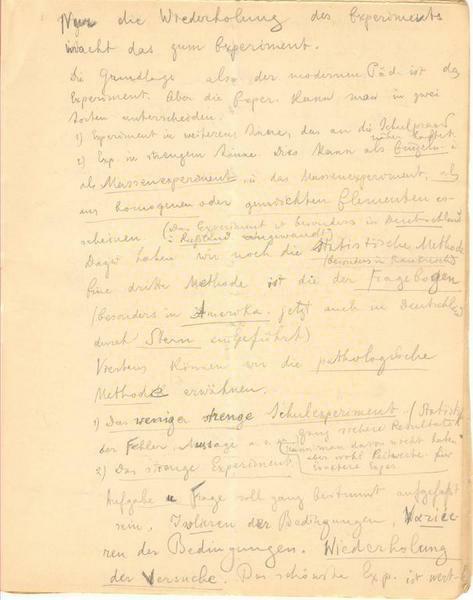 Nur die Wiederholung des Experiments
macht das zum Experiment.
Die Grundlage also der modernen Päd. ist das
Experiment. Aber die Exper. kann man in zwei
Sorten unterscheiden.
1) Experiment in weiterem Sinne, das an die Schulpraxis
näher
2) Exp. in strengem Sinne. Dies kann als Einzeln- u
als Massenexperiment u. das Massenexperiment, als
aus homogenen oder gemischten Elementen er-
scheinen. (Das Experiment ist besonders in Deutschland
u. Rußland angewandt)
Dazu haben wir noch die statistische Methode
(besonders in Frankreich)
Eine dritte Methode ist die der Fragebogen
(besonders in Amerika, jetzt auch in Deutschl.
durch Stern eingeführt)
Viertens können wir die pathologische
Methode erwähnen.
1) Das weniger strenge Schulexperiment (Statistik
der Fehler, Aussage a. s. w. ganz sichere Resultate
kann man davon nicht haben
aber wohl für
2) Das strenge Experiment
Aufgabe u Frage soll ganz bestimmt aufgefaßt
sein. Isolieren der Bedingungen. Variie-
ren der Bedingungen. Wiederholung
der Versuche. Das schönste Exp. ist wert-